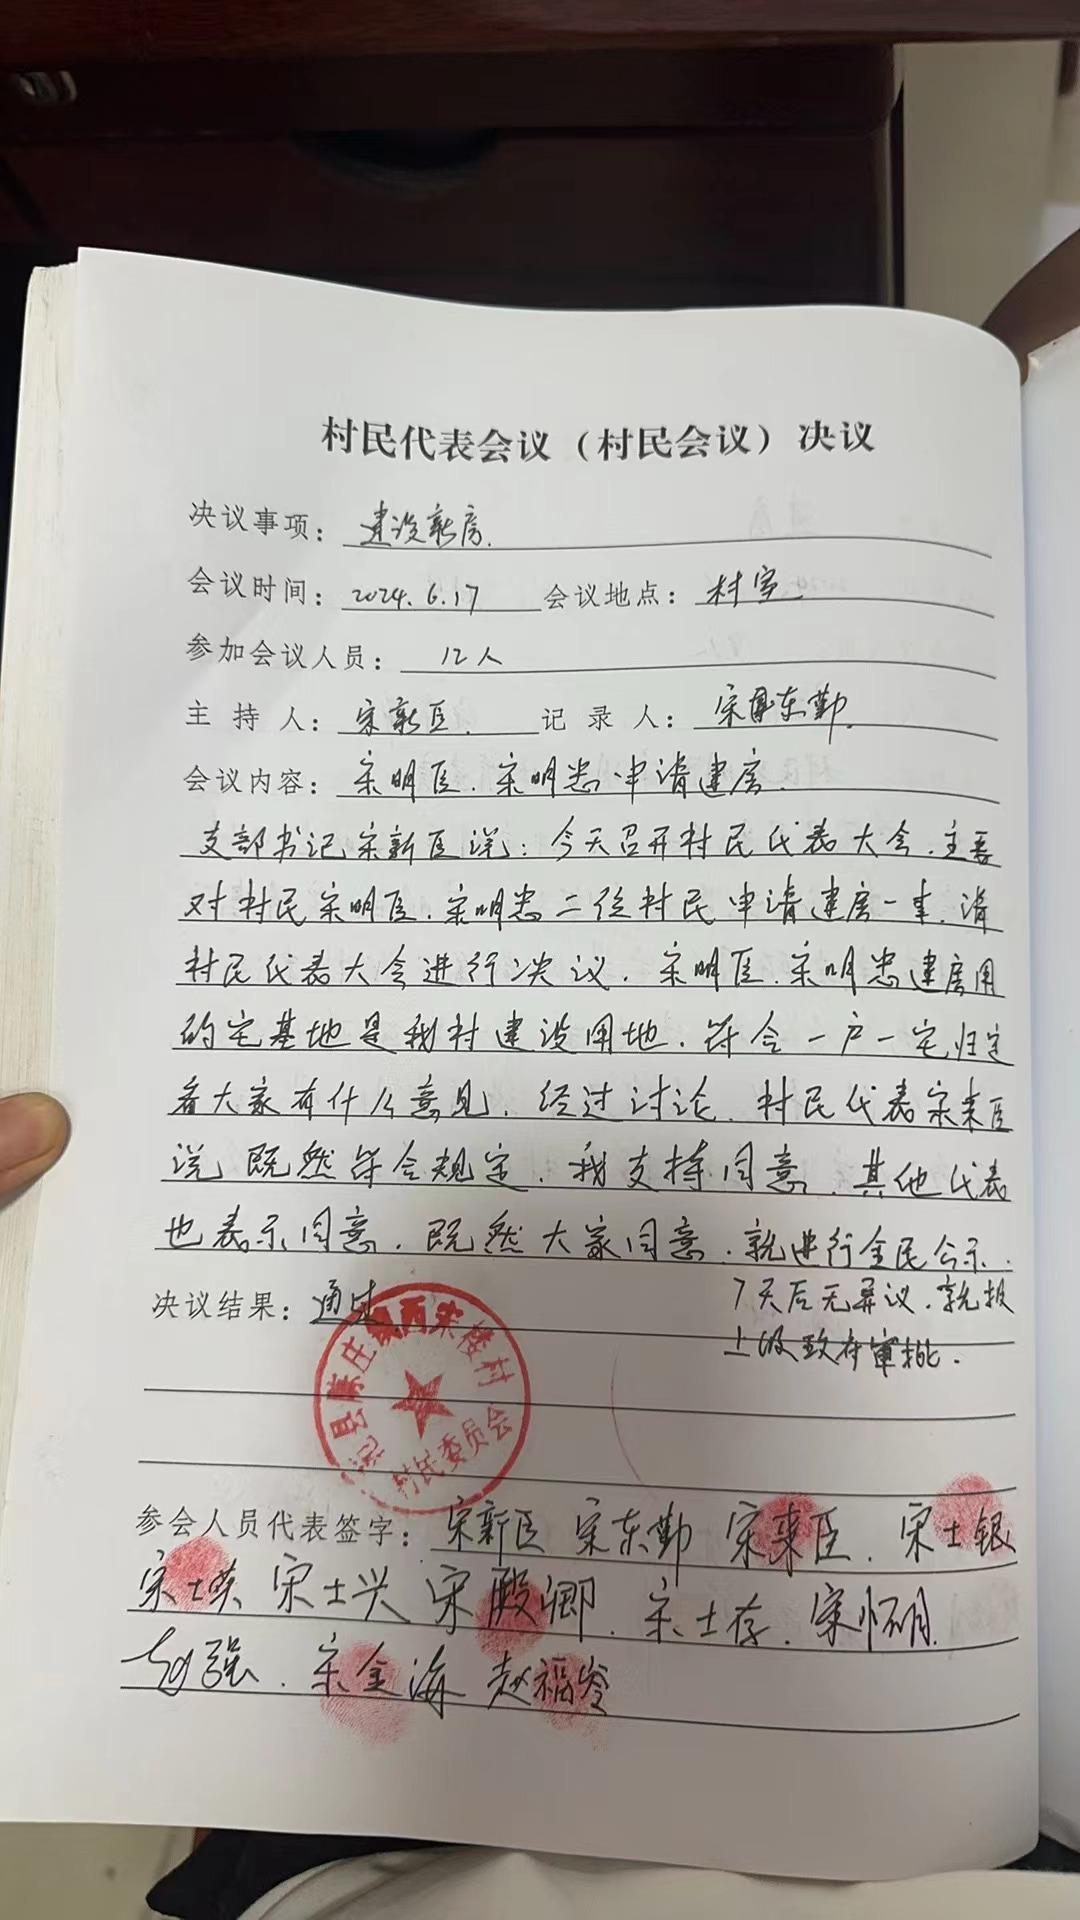 村民代表会议（村民会议）决议
决议事项：建设新房.
会议时间：2024.6.17 会议地点：村室
参加会议人员：12人
主持人：宋新臣. 记录人：宋东勤.
会议内容：宋明臣.宋明忠申请建房.
支部书记宋新臣说：今天召开村民代表大会.主要
对村民宋明臣.宋明忠二位村民申请建房一事.请
村民代表大会进行决议.宋明臣.宋明忠建房用
的宅基地是我村建设用地.符合一户一宅归定
看大家有什么意见.经过讨论.村民代表宋来臣
说既然符合规定.我支持同意.其他代表
也表示同意.既然大家同意.就进行全民公示.
7天后无异议.就报
上级政府审批.
决议结果：通过.
县康庄镇西宋楼村
村民委员会
参会人员代表签字：宋新臣 宋东勤 宋来臣.宋士银
宋士英 宋士兴 宋殿卿.宋士存.宋怀明.
赵强.宋金海 赵福岺